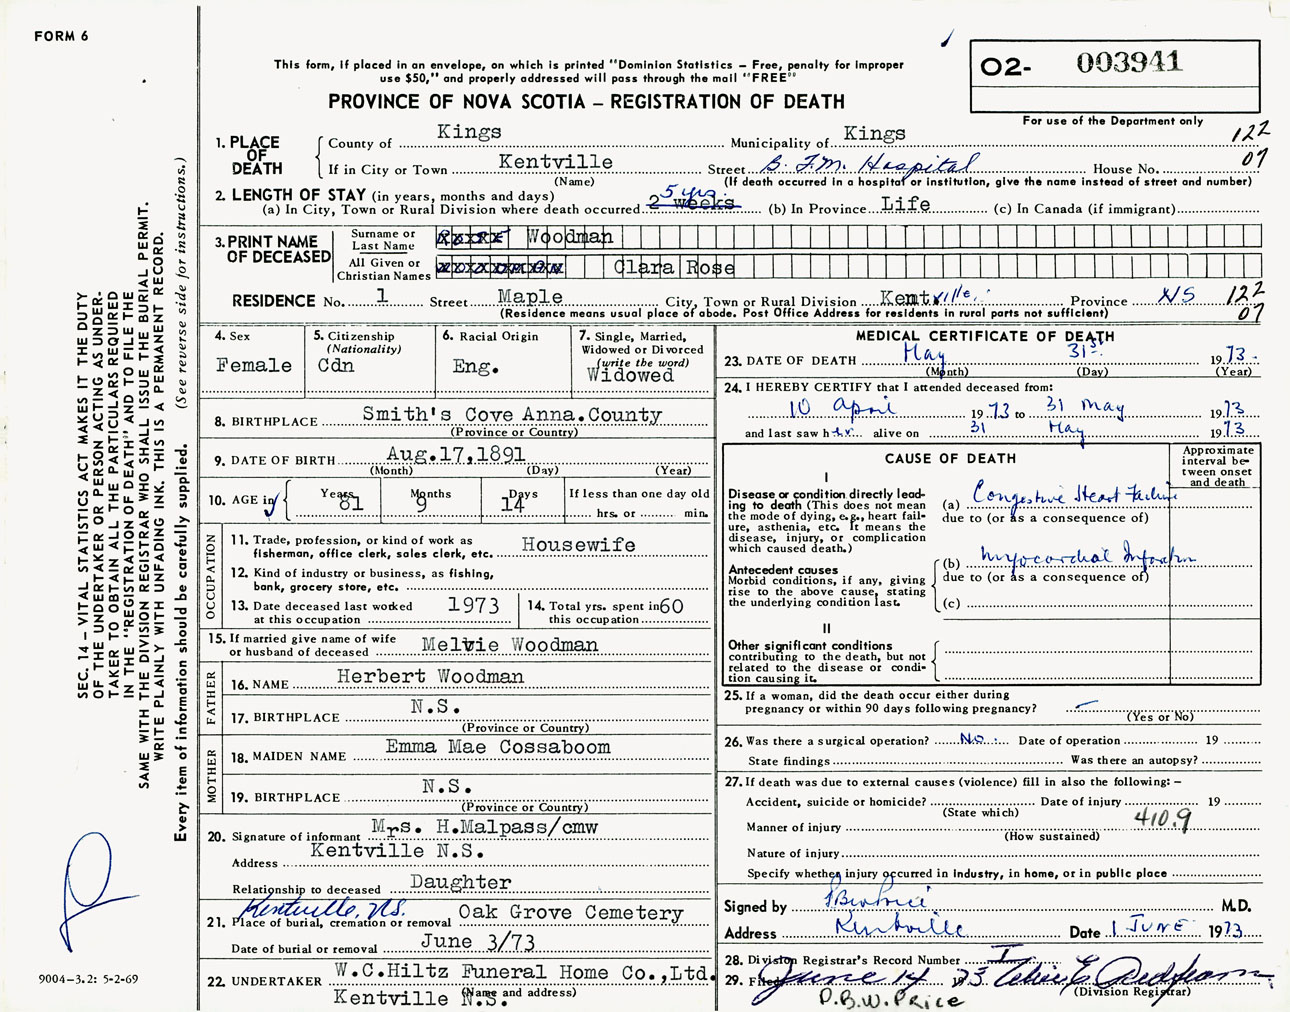 FORM 6
This form, if placed in an envelope, on which is printed "Dominion Statistics – Free, penalty for improper
use $50," and properly addressed will pass through the mail "FREE"
PROVINCE OF NOVA SCOTIA – REGISTRATION OF DEATH
02- 003941
For use of the Department only
122
07
1. PLACE OF DEATH
County of Kings Municipality of Kings
If in City or Town Kentville Street B.F.M. Hospital House No.
(Name) (If death occurred in a hospital or institution, give the name instead of street and number)
2. LENGTH OF STAY (in years, months and days)
(a) In City, Town or Rural Division where death occurred 2 weeks 5 yrs. (b) In Province Life (c) In Canada (if immigrant)
3. PRINT NAME OF DECEASED
Surname or Last Name Woodman
All Given or Christian Names Clara Rose
RESIDENCE No. 1 Street Maple City, Town or Rural Division Kentville Province NS 122
(Residence means usual place of abode. Post Office Address for residents in rural parts not sufficient) 07
4. Sex
Female
5. Citizenship
(Nationality)
Cdn
6. Racial Origin
Eng.
7. Single, Married,
Widowed or Divorced
(write the word)
Widowed
8. BIRTHPLACE Smith's Cove Anna.County
(Province or Country)
9. DATE OF BIRTH Aug.17,1891
(Month) (Day) (Year)
10. AGE in Years 81 Months 9 Days 14 If less than one day old
hrs. or min.
OCCUPATION
11. Trade, profession, or kind of work as
fisherman, office clerk, sales clerk, etc. Housewife
12. Kind of industry or business, as fishing,
bank, grocery store, etc.
13. Date deceased last worked
at this occupation 1973
14. Total yrs. spent in
this occupation 60
15. If married give name of wife
or husband of deceased Melvie Woodman
FATHER
16. NAME Herbert Woodman
17. BIRTHPLACE N.S.
(Province or Country)
MOTHER
18. MAIDEN NAME Emma Mae Cossaboom
19. BIRTHPLACE N.S.
(Province or Country)
20. Signature of informant Mrs. H.Malpass/cmw
Address Kentville N.S.
Relationship to deceased Daughter
Kentville, NS.
21. Place of burial, cremation or removal Oak Grove Cemetery
Date of burial or removal June 3/73
22. UNDERTAKER W.C.Hiltz Funeral Home Co.,Ltd.
(Name and address)
Kentville N.S.
MEDICAL CERTIFICATE OF DEATH
23. DATE OF DEATH May 31st. 1973
(Month) (Day) (Year)
24. I HEREBY CERTIFY that I attended deceased from:
10 April 1973 to 31 May 1973
and last saw her alive on 31 May 1973
CAUSE OF DEATH
Approximate
interval be-
tween onset
and death
I
Disease or condition directly lead-
ing to death (This does not
mean the mode of dying, e.g., heart fail-
ure, asthenia, etc. It means the
disease, injury, or complication
which caused death.)
(a) Congestive Heart Failure
due to (or as a consequence of)
Antecedent causes
Morbid conditions, if any, giving
rise to the above cause, stating
the underlying condition last.
(b) Myocardial Infarction
due to (or as a consequence of)
(c)
II
Other significant conditions
contributing to the death, but not
related to the disease or condi-
tion causing it.
25. If a woman, did the death occur either during
pregnancy or within 90 days following pregnancy?
(Yes or No)
26. Was there a surgical operation? No. Date of operation 19
State findings Was there an autopsy?
27. If death was due to external causes (violence) fill in also the following: –
Accident, suicide or homicide? Date of injury 19
(State which)
Manner of injury 410.9
(How sustained)
Nature of injury
Specify whether injury occurred in industry, in home, or in public place
Signed by M.D.
Address Kentville Date 1 JUNE 1973
28. Division Registrar's Record Number
29. Filed June 14 73
(Division Registrar)
D.B.W. PRICE
SEC. 14 – VITAL STATISTICS ACT MAKES IT THE DUTY
OF THE UNDERTAKER OR PERSON ACTING AS UNDER-
TAKER TO OBTAIN ALL THE PARTICULARS REQUIRED
IN THE "REGISTRATION OF DEATH" AND TO FILE THE
SAME WITH THE DIVISION REGISTRAR WHO SHALL ISSUE THE BURIAL PERMIT.
WRITE PLAINLY WITH UNFADING INK. THIS IS A PERMANENT RECORD.
Every item of information should be carefully supplied. (See reverse side for instructions.)
9004–3.2: 5-2-69